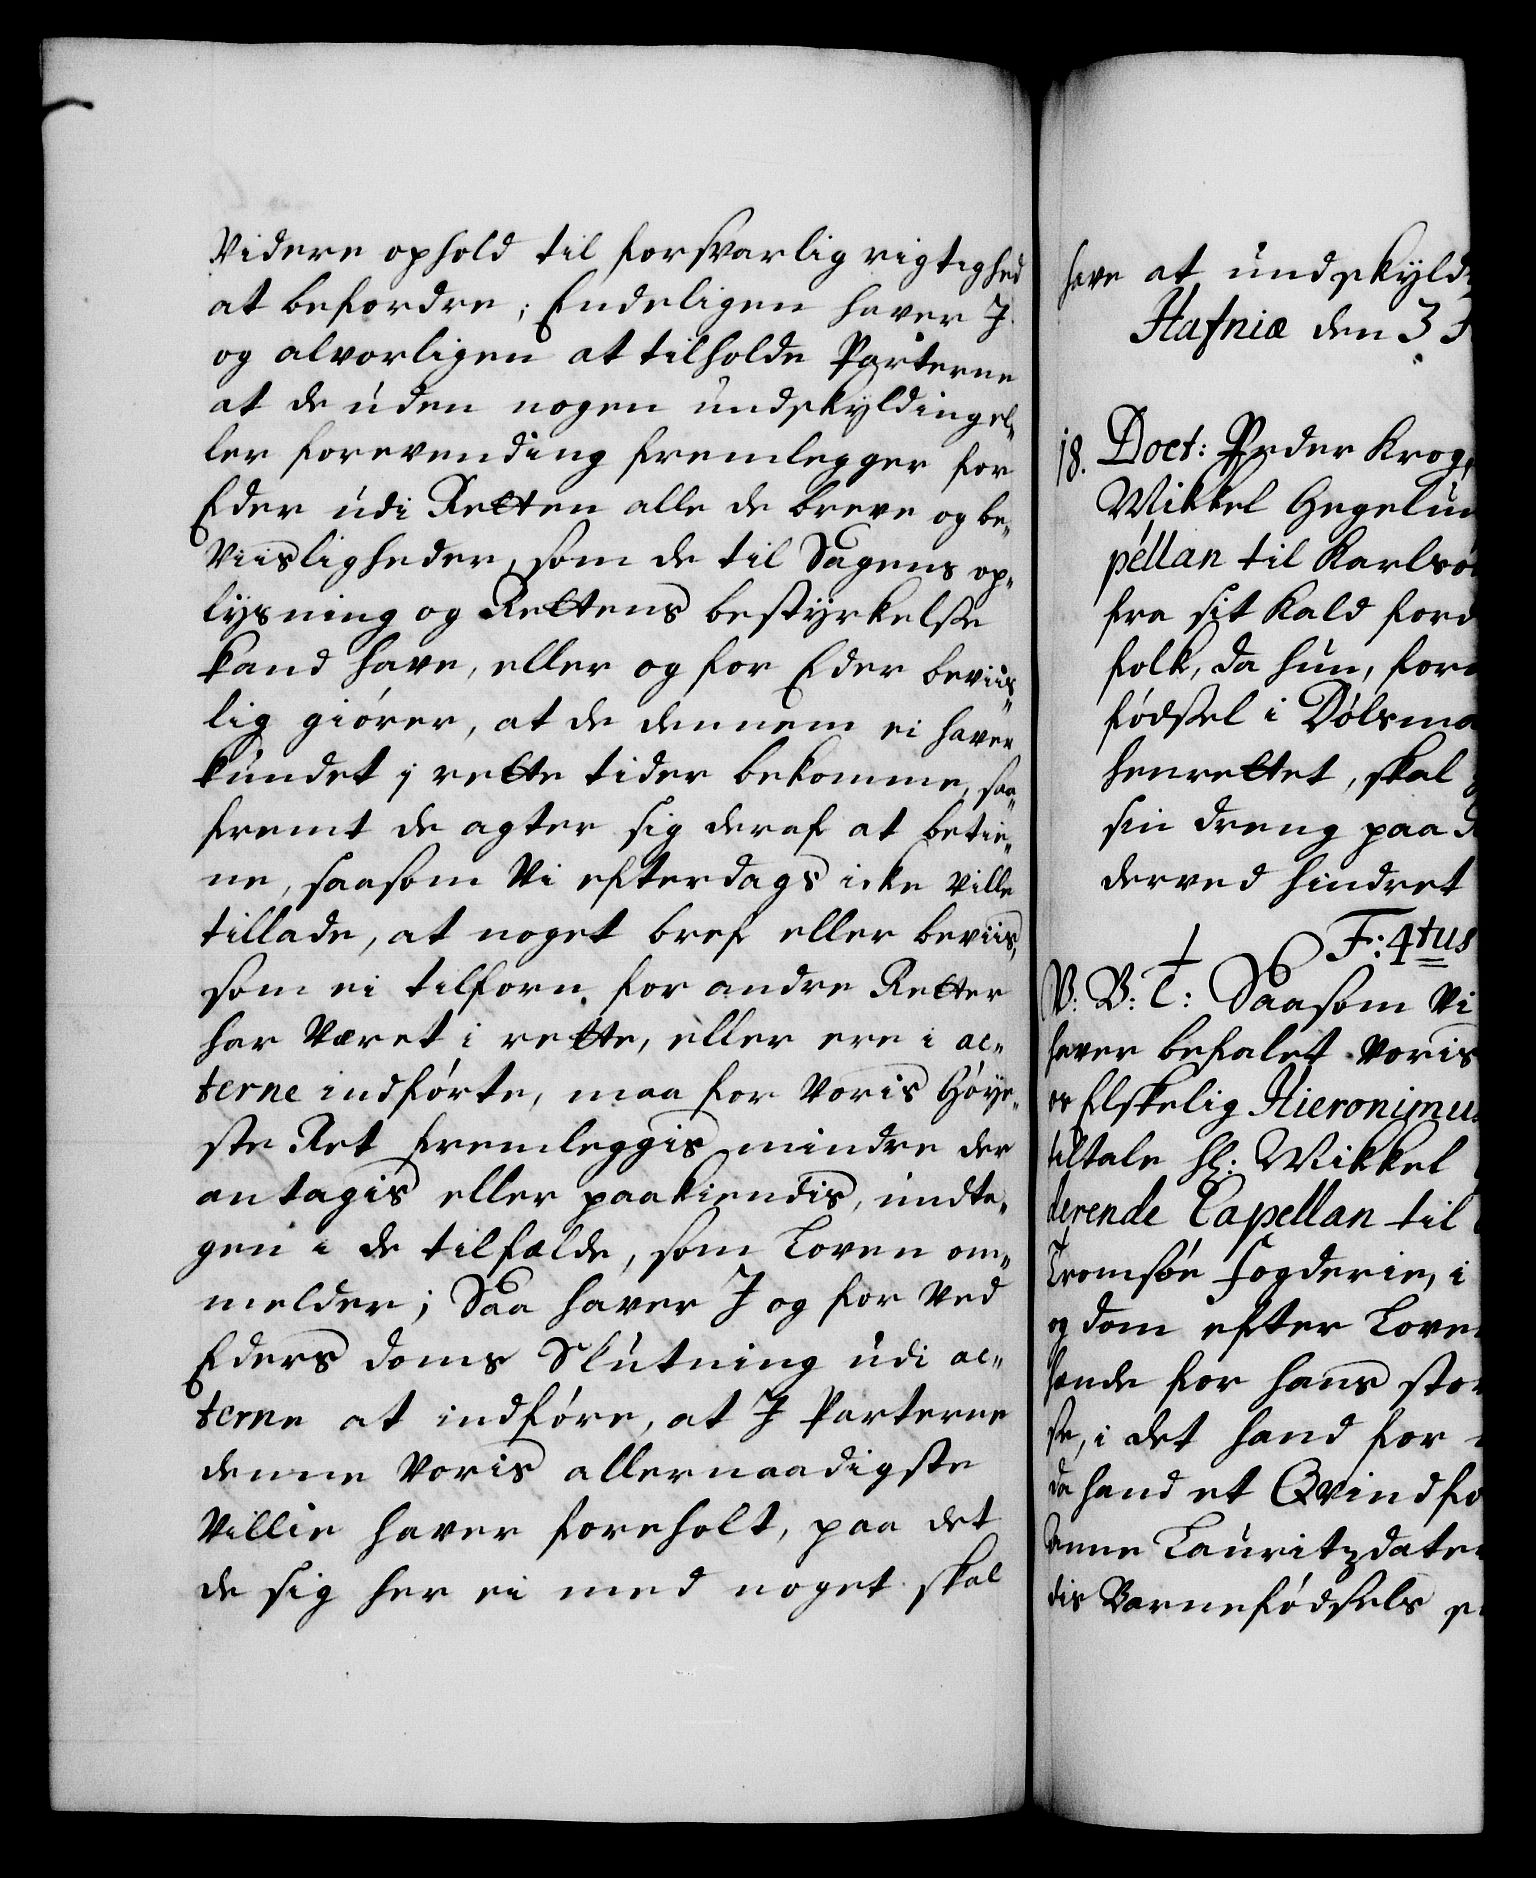 Videre ophold til forsvarlig rigtighed
at befordre; Endeligen haver J
og alvorligen at tilholde Parterne
at de uden nogen undskylding el„
ler forevending fremlegger for
Eder udi Retten alle de breve og be„
viisligheder, som de til Sagens op„
lysning og Rettens bestyrkelse
kand have, eller og for Eder beviis„
lig giører, at de dennem ei haver
kundet j rette tider bekomme, saa„
fremt de agter sig deraf at betie„
ne, saasom Vi efterdags icke ville
tillade, at noget bref eller beviis,
som ei tilforn for andre Retter
har været i rette, eller ere i ac„
terne indførte, maa for Voris Høye„
ste Ret fremleggis mindre der
antagis eller paakiendis, undta„
gen i de tilfælde, som Loven om„
melder; Saa haver J og for ved
Eders doms Slutning udi ac„
terne at indføre, at J Parterne
denne Voris allernaadigste
Villie haver foreholt, paa det
de sig her ei med noget skal
have at undskyld
Hafniæ den 3 F
18. Doct: Peder Krog,
Mikkel Hegelun
pellan til Karlsø
fra sit Kald ford
folk, da hun, for
fødsel i Dølsma
henrettet, skal
sin dreng paa
derved hindret
F: 4tus
V. V: T: Saasom Vi
haver befalet voris
os Elskelig Hieronimus
tiltale Hr: Mikkel
derende Capellan til
Tromsøe Fogderie, i
og dom efter Loven
hende for hans stor
se, i det hand for
da hand et Qvindfo
Anne Lauritzdater
dis Barnefødsels